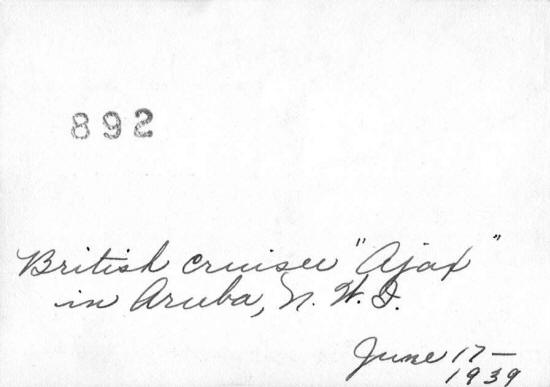 892
British cruiser "Ajax"
in Aruba, N. W. I.
June 17-
1939